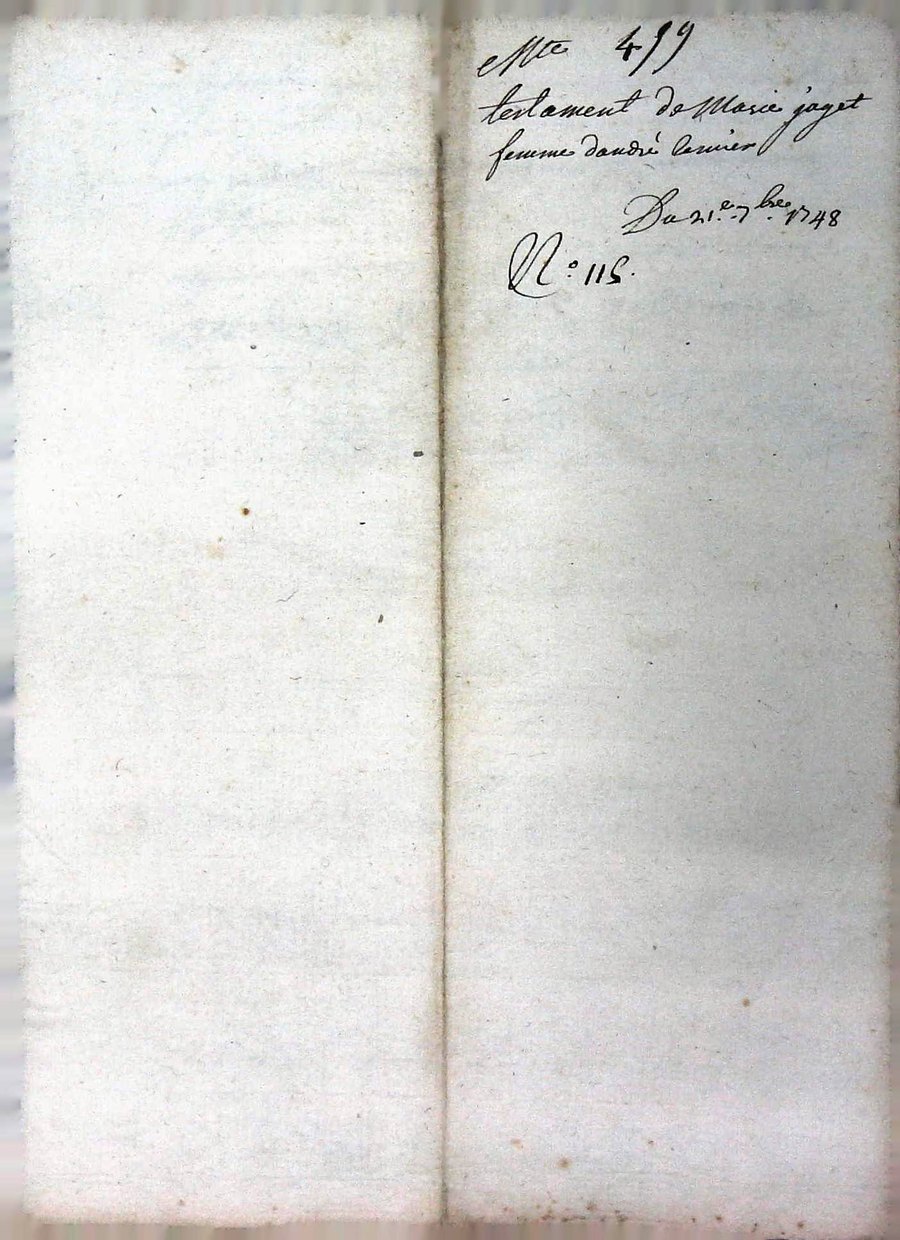 499
testament de Marie jaget
femme dandré
Du 21.e 7bre 1748
No. 115.